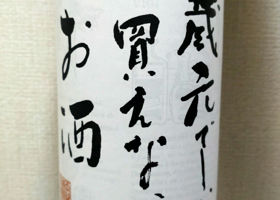 蔵元でしか
買えない
お酒